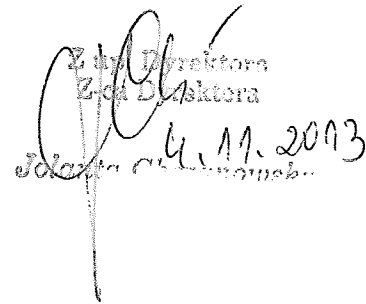 Z up. Dyrektora
Z-ca Dyrektora
4.11.2013
Jolanta